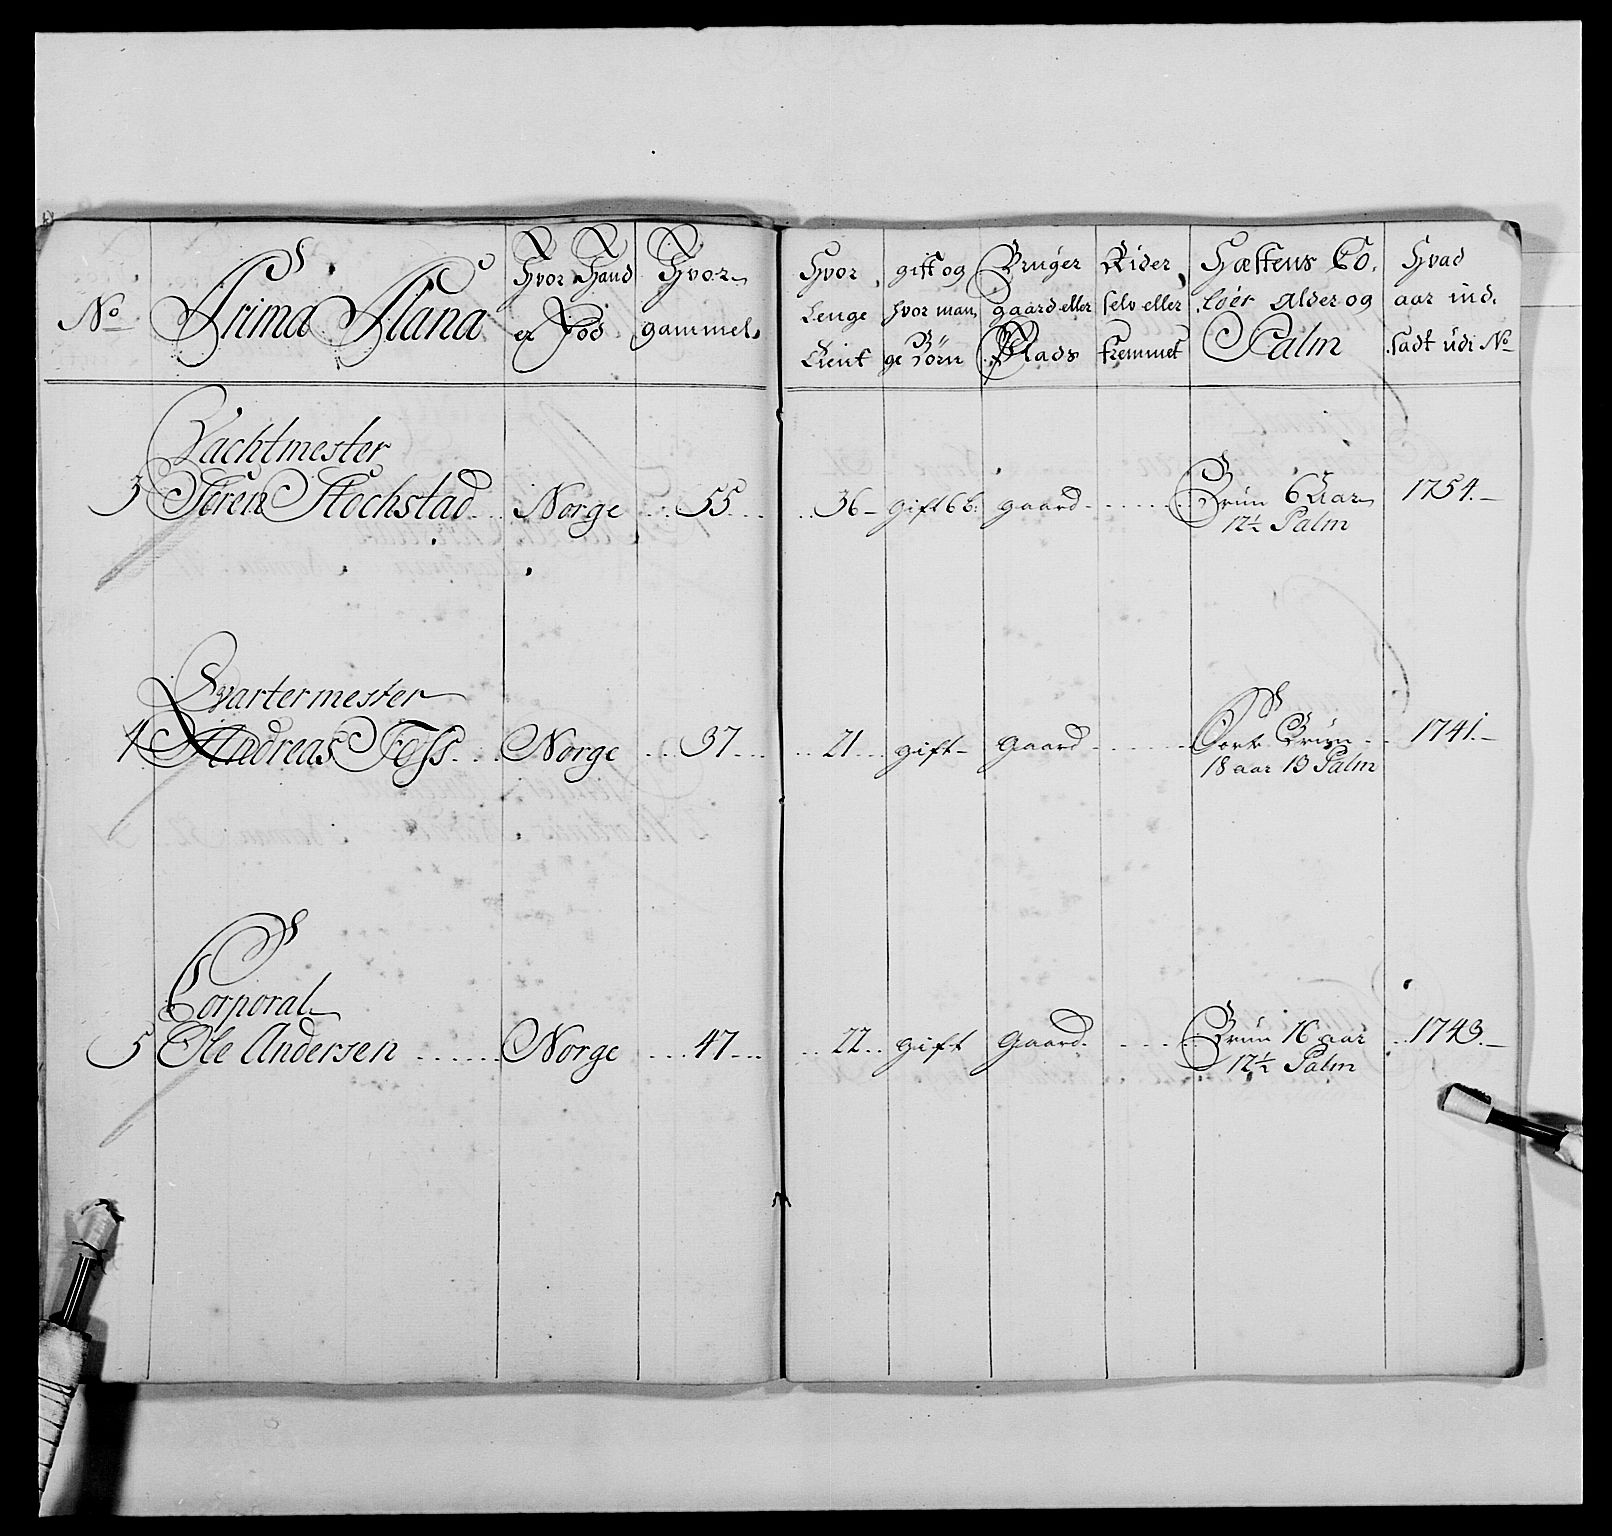 No
Prima Plana
Hvor Hand
er Föd
Hvor
gammel.
Hvor
Lenge
Tient
gift og
hvor man
ge Börn
Bruger
gaard eller
Plads
Rider
selv eller
fremmet
Hæstens Co.
löer Alder og
Palm
Hvad
aar ind.
sadt udi No
Vachtmester
3 Sören Stochstad Norge 55 36 gift 6 b. gaard Brün 6 aar 1754.
12½ Palm
Qvartermester
4 Andreas Foss Norge 37 21 gift gaard Sort Brün 1741.
18 aar 13 Palm
Corporal
5 Ole Andersen Norge 47 22 gift gaard Brün 16 aar 1743.
12½ Palm